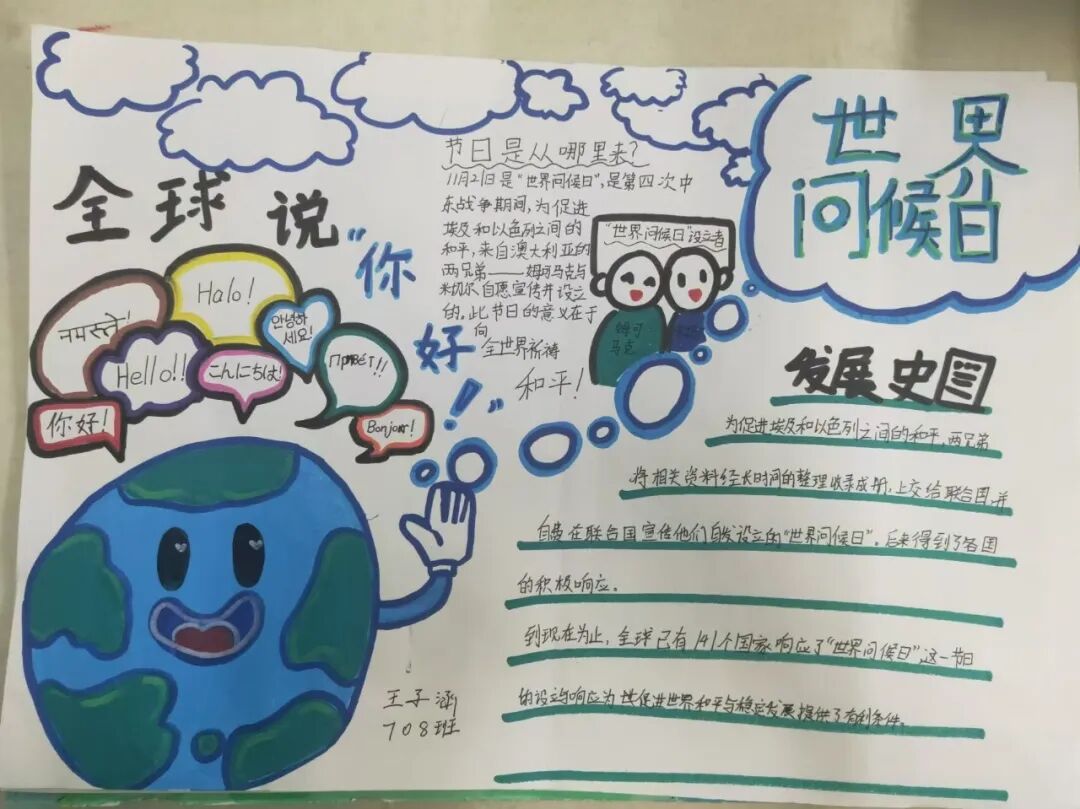 世界
问候日
全球说
“你
好！”
नमस्ते!
Halo!
안녕하
세요!
Hello!!
こんにちは!
Привет!!
你好!
Bonjour!
节日是从哪里来?
11月21日是“世界问候日”,是第四次中
东战争期间,为促进
埃及和以色列之间的
和平,来自澳大利亚的
两兄弟——姆可马克与
米切尔自愿宣传并设立
的。此节日的意义在于
向
全世界祈祷
和平!
“世界问候日”设立者
姆可
马克
发展史图
为促进埃及和以色列之间的和平,两兄弟
将相关资料经长时间的整理收录成册,上交给联合国,并
自费在联合国宣传他们自发设立的“世界问候日”。后来得到了各国
的积极响应。
到现在为止,全球已有141个国家响应了“世界问候日”,这一节日
的设立与响应为促进世界和平与稳定发展提供了有利条件。
王子涵
708班